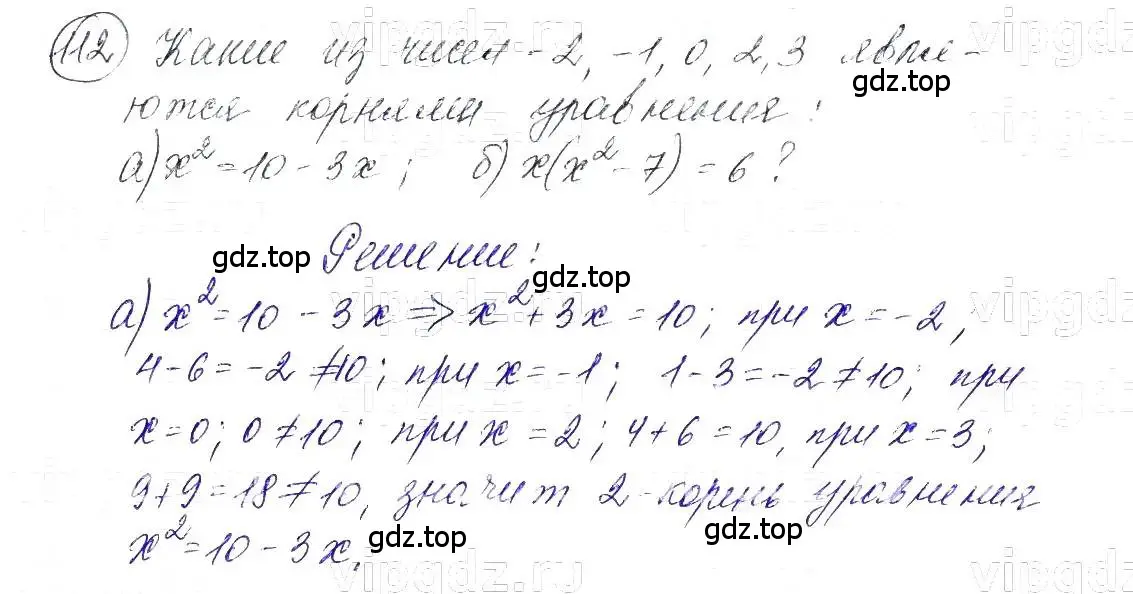 112 Какие из чисел -2, -1, 0, 2, 3 явля-
ются корнями уравнения:
а) x² = 10 - 3x; б) x(x² - 7) = 6?
Решение:
а) x² = 10 - 3x => x² + 3x = 10; при x = -2,
4 - 6 = -2 ≠ 10; при x = -1; 1 - 3 = -2 ≠ 10; при
x = 0; 0 ≠ 10; при x = 2; 4 + 6 = 10, при x = 3;
9 + 9 = 18 ≠ 10, значит 2 - корень уравнения
x² = 10 - 3x.
gdz.top
gdz.top
gdz.top
gdz.top
gdz.top
gdz.top
vipgdz.ru